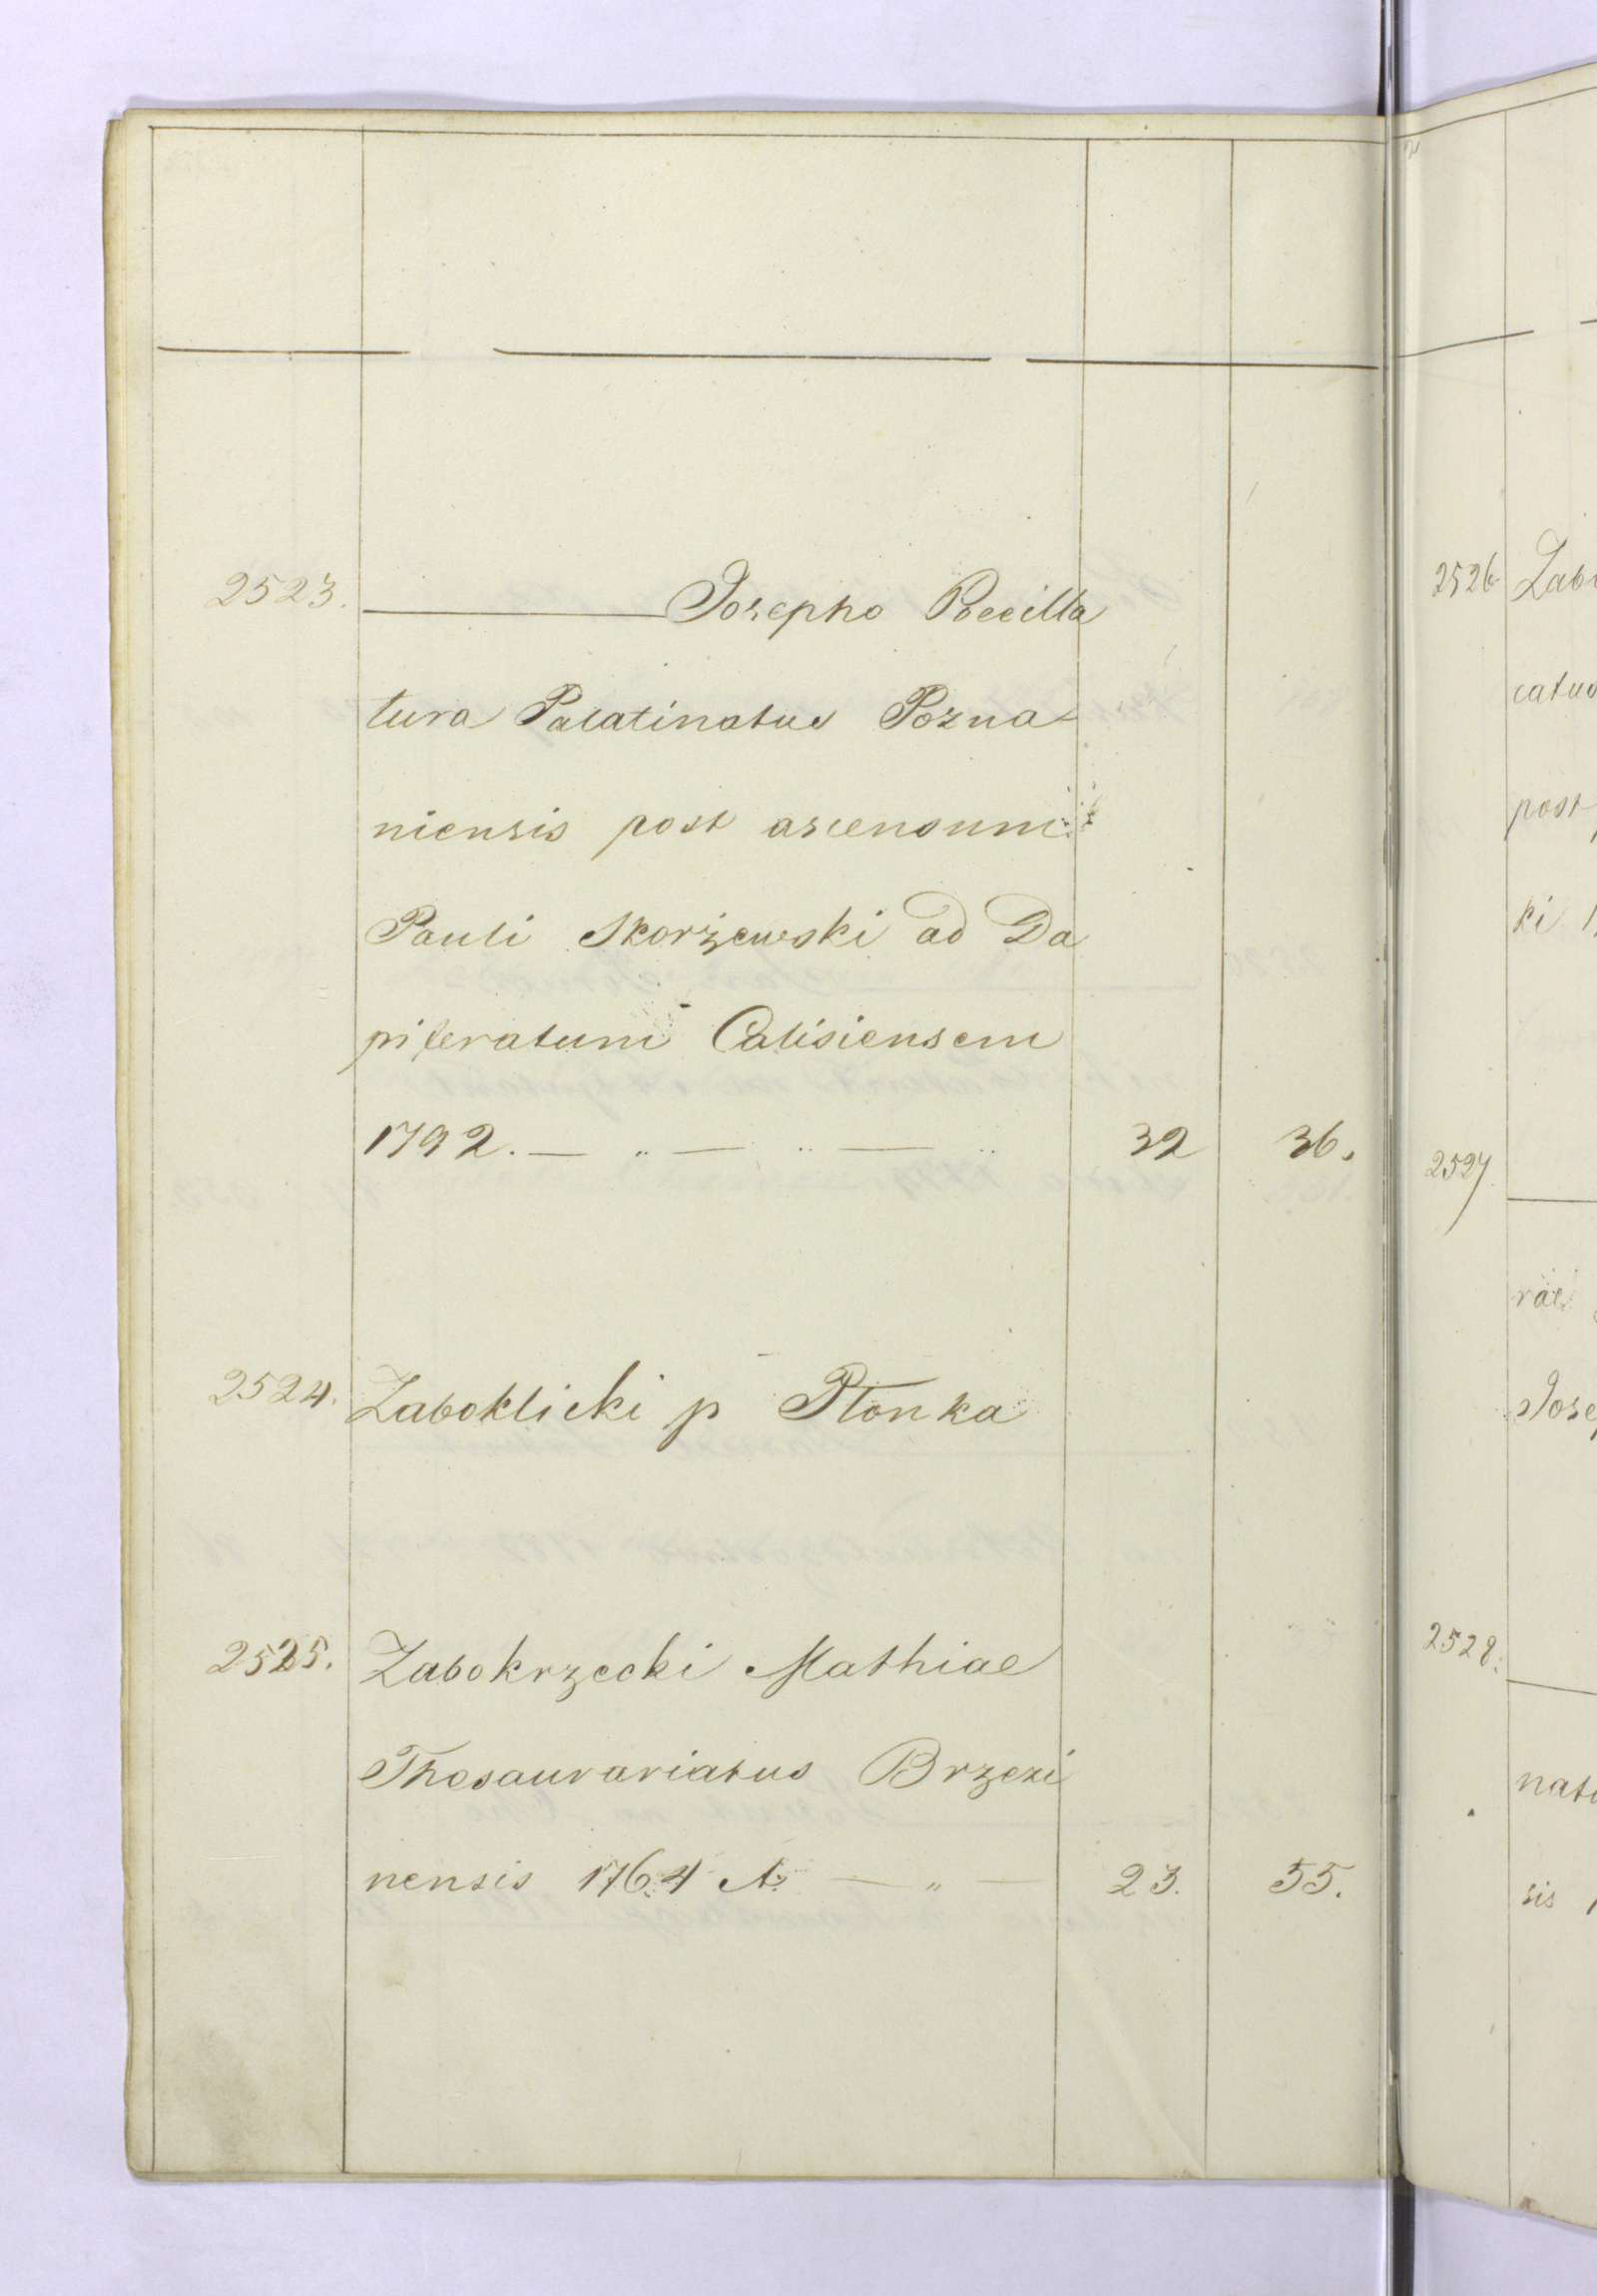 2523. ——— Josepho Pocilla
tura Palatinatus Pozna
niensis post ascensum
Pauli Skorżewski ad Da
piferatum Calisiensem
1792. — „ — „ — „ 32 36.
2524. Zaboklicki p Płonka
2525. Zabokrzecki Mathiae
Thesaurariatus Brzezi
nensis 1764 A. — „ — 23. 55.
2526 Zabo
catus
post
ki 1
2527
rae
Jose
2528.
nat
sis 1